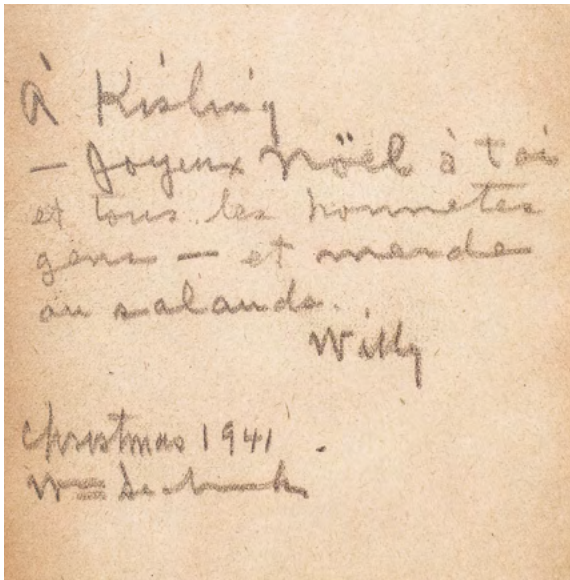 À Kisling
— Joyeux Nöel à toi
et tous les honnetes
gens — et merde
au salauds.
Willy
Christmas 1941.
Wm